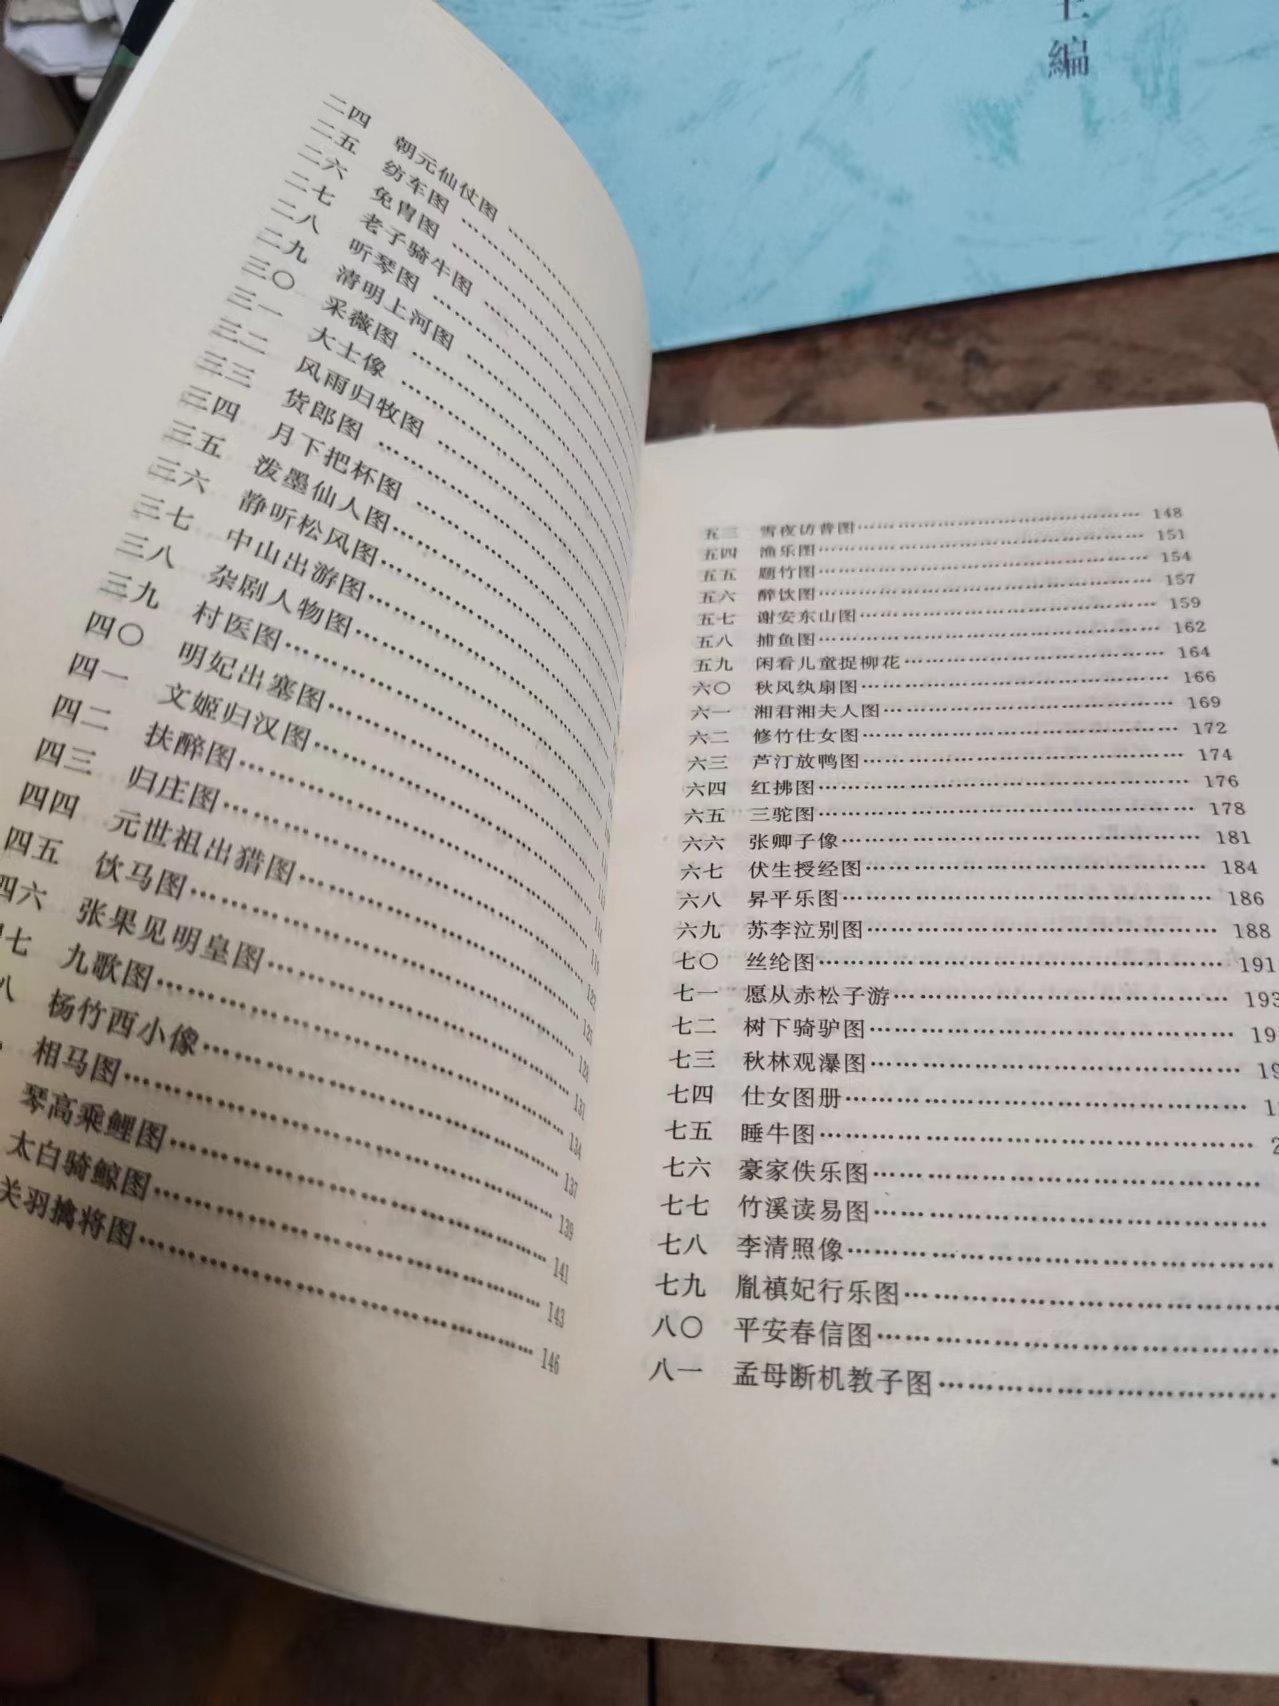 主编
二四 朝元仙仗图
二五 纺车图
二六 免胄图
二七 老子骑牛图
二八 听琴图
二九 清明上河图
三〇 采薇图
三一 大士像
三二 风雨归牧图
三三 货郎图
三四 月下把杯图
三五 泼墨仙人图
三六 静听松风图
三七 中山出游图
三八 杂剧人物图
三九 村医图
四〇 明妃出塞图
四一 文姬归汉图
四二 扶醉图
四三 归庄图
四四 元世祖出猎图
四五 饮马图
四六 张果见明皇图
七 九歌图
八 杨竹西小像
相马图
琴高乘鲤图 141
太白骑鲸图 143
关羽擒将图 146
五三 雪夜访普图 148
五四 渔乐图 151
五五 题竹图 154
五六 醉饮图 157
五七 谢安东山图 159
五八 捕鱼图 162
五九 闲看儿童捉柳花 164
六〇 秋风纨扇图 166
六一 湘君湘夫人图 169
六二 修竹仕女图 172
六三 芦汀放鸭图 174
六四 红拂图 176
六五 三驼图 178
六六 张卿子像 181
六七 伏生授经图 184
六八 昇平乐图 186
六九 苏李泣别图 188
七〇 丝纶图 191
七一 愿从赤松子游 193
七二 树下骑驴图 19
七三 秋林观瀑图 19
七四 仕女图册 1
七五 睡牛图 2
七六 豪家佚乐图
七七 竹溪读易图
七八 李清照像
七九 胤禛妃行乐图
八〇 平安春信图
八一 孟母断机教子图